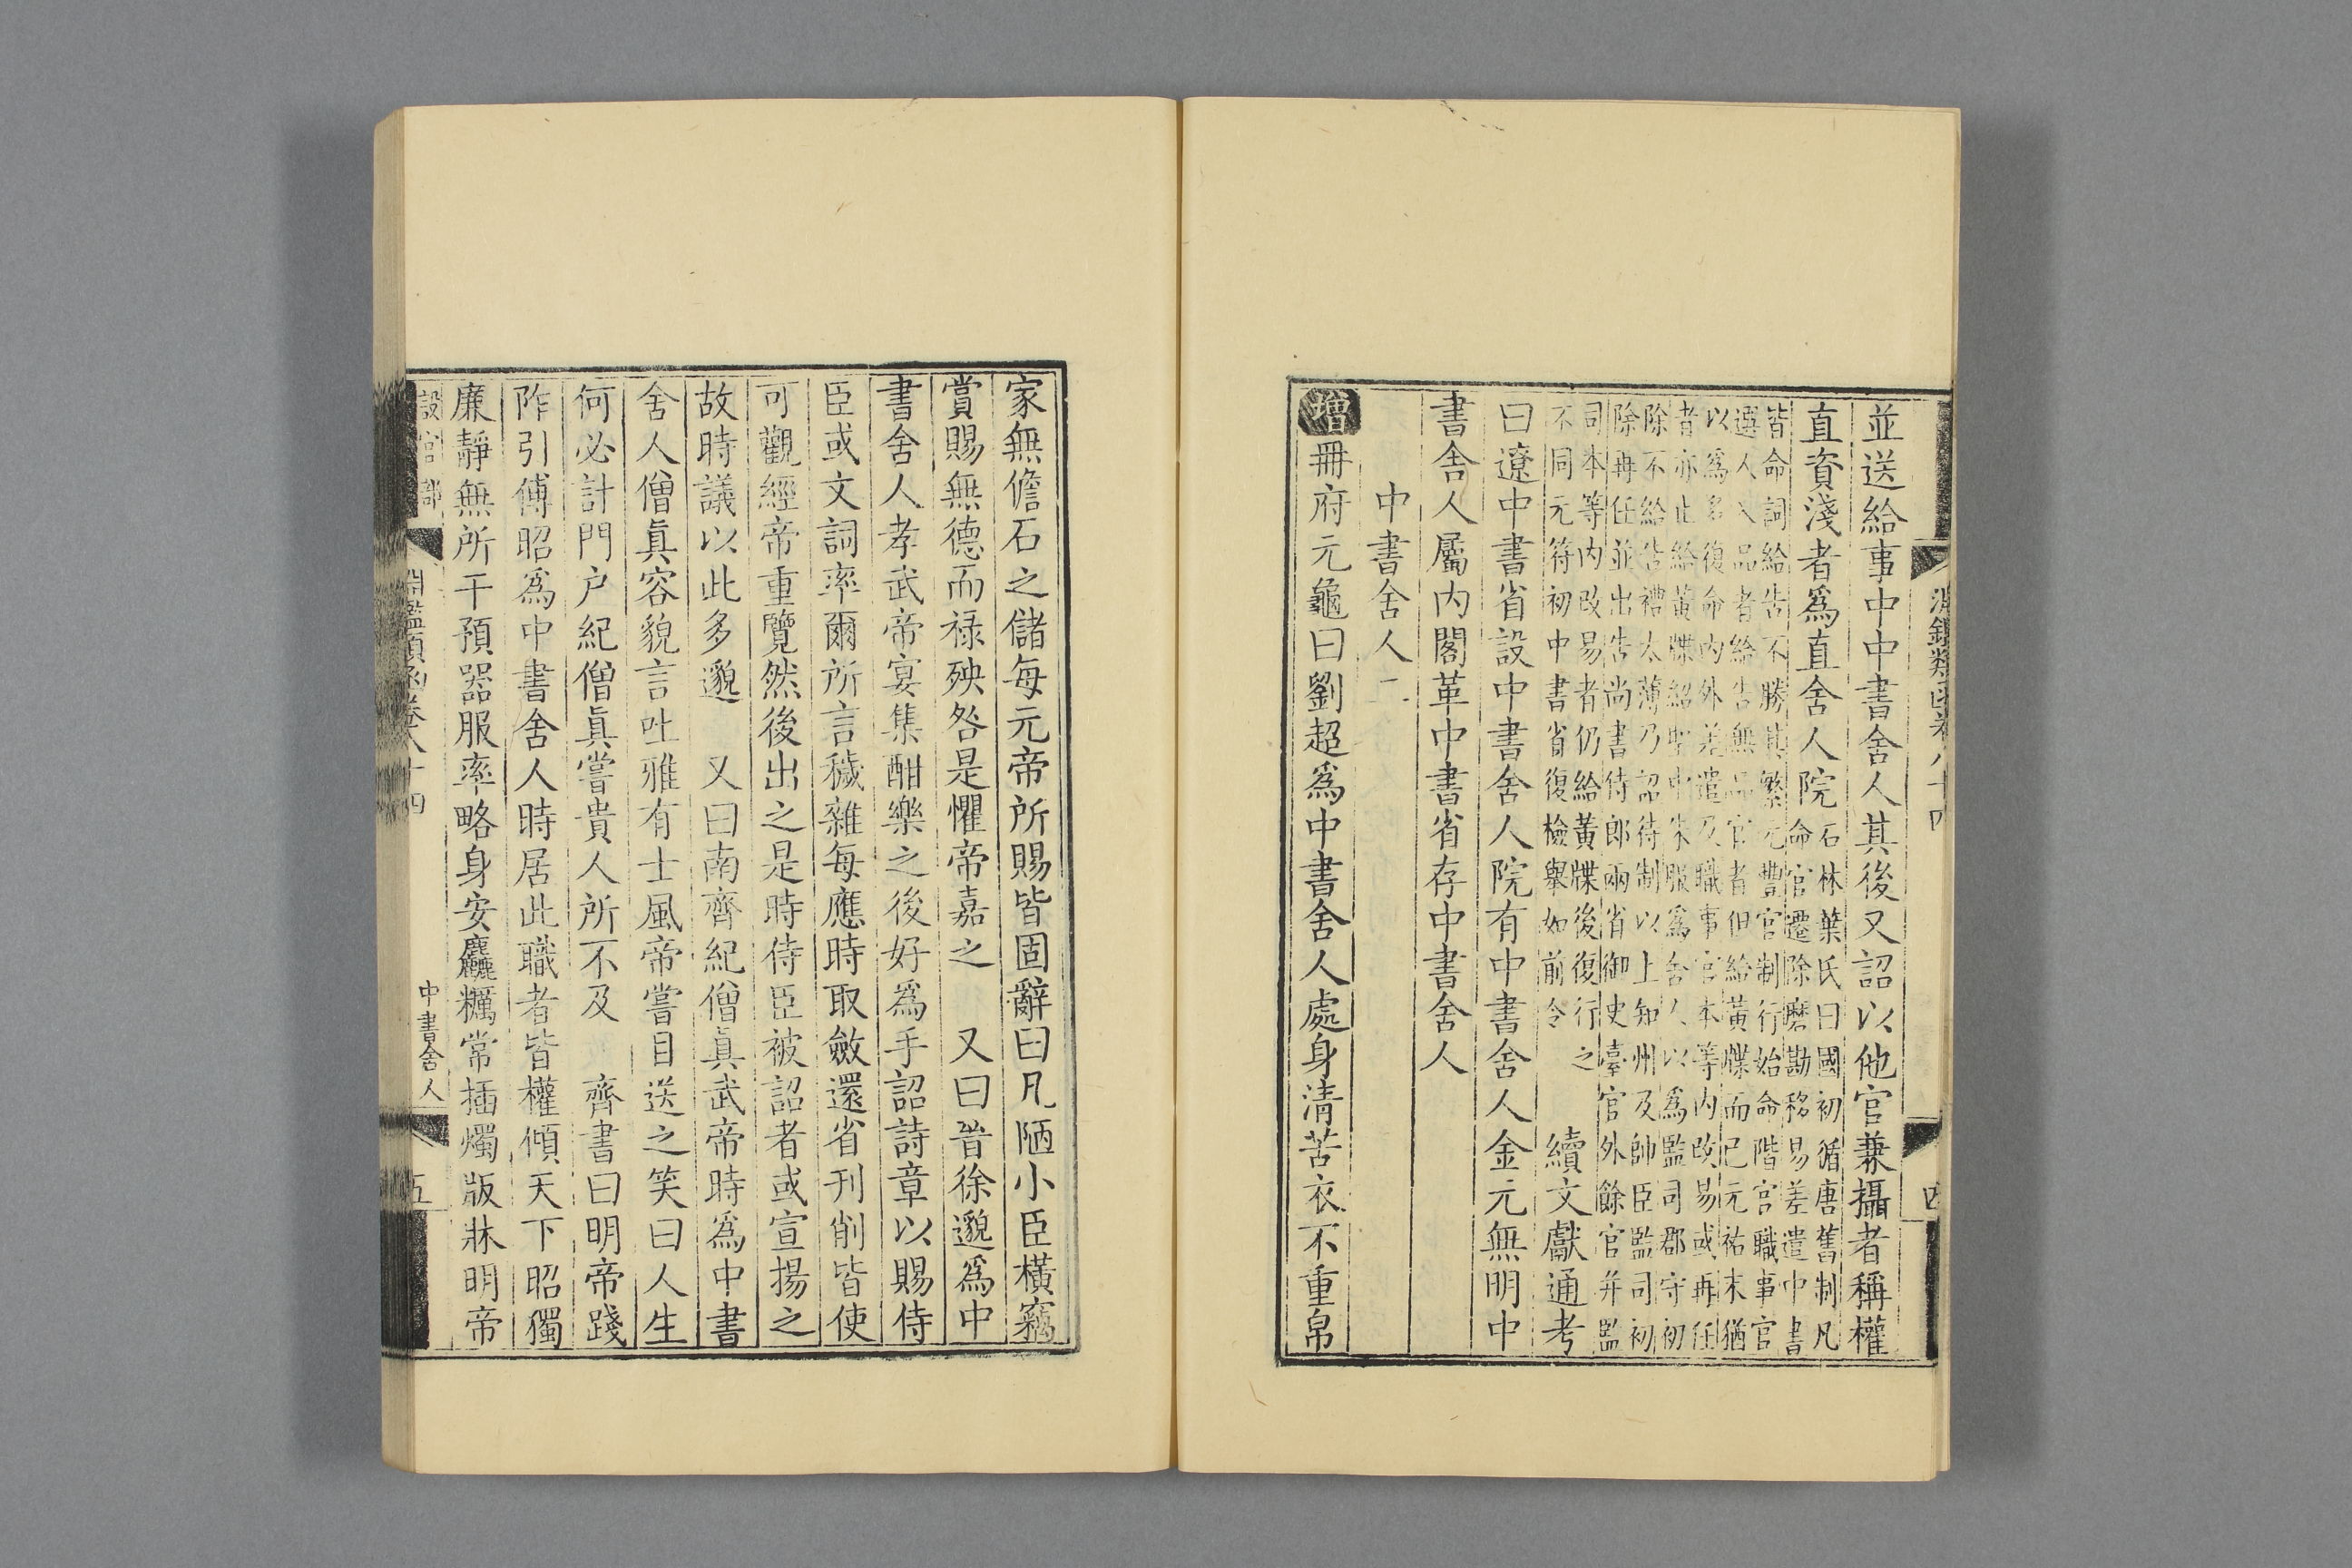 並送給事中中書舍人其後又詔以他官兼攝者稱權
直資淺者爲直舍人院
石林葉氏曰國初循唐舊制凡
命官遷除磨勘移易差遣中書
皆命詞給告不勝其繁元豐官制行始命階官職事官
選人入品者給告無品官者但給黃牒而已元祐末猶
以爲多復命內外差遣及職事官本等內改易或再任
者亦止給黃牒紹聖中朱服爲舍人以爲監司郡守初
除不給告禮太薄乃詔待制以上知州及帥臣監司初
除再任並出告尚書侍郎兩省御史臺官外餘官并監
司本等內改易者仍給黃牒後復行之
不同元符初中書省復檢舉如前令
續文獻通考
曰遼中書省設中書舍人院有中書舍人金元無明中
書舍人屬內閣革中書省存中書舍人
中書舍人二
增冊府元龜曰劉超爲中書舍人處身清苦衣不重帛
淵鑑類函卷八十四
四
家無儋石之儲每元帝所賜皆固辭曰凡陋小臣橫竊
賞賜無德而祿殃咎是懼帝嘉之 又曰昔徐邈爲中
書舍人孝武帝宴集酣樂之後好爲手詔詩章以賜侍
臣或文詞率爾所言穢雜每應時收斂還省刊削皆使
可觀經帝重覽然後出之是時侍臣被詔者或宣揚之
故時議以此多邈 又曰南齊紀僧眞武帝時爲中書
舍人僧眞容貌言吐雅有士風帝嘗目送之笑曰人生
何必計門户紀僧眞嘗貴人所不及 齊書曰明帝踐
阼引傅昭爲中書舍人時居此職者皆權傾天下昭獨
廉靜無所干預器服率略身安麤糲常插燭版牀明帝
設官部
淵鑑類函卷八十四
中書舍人
五